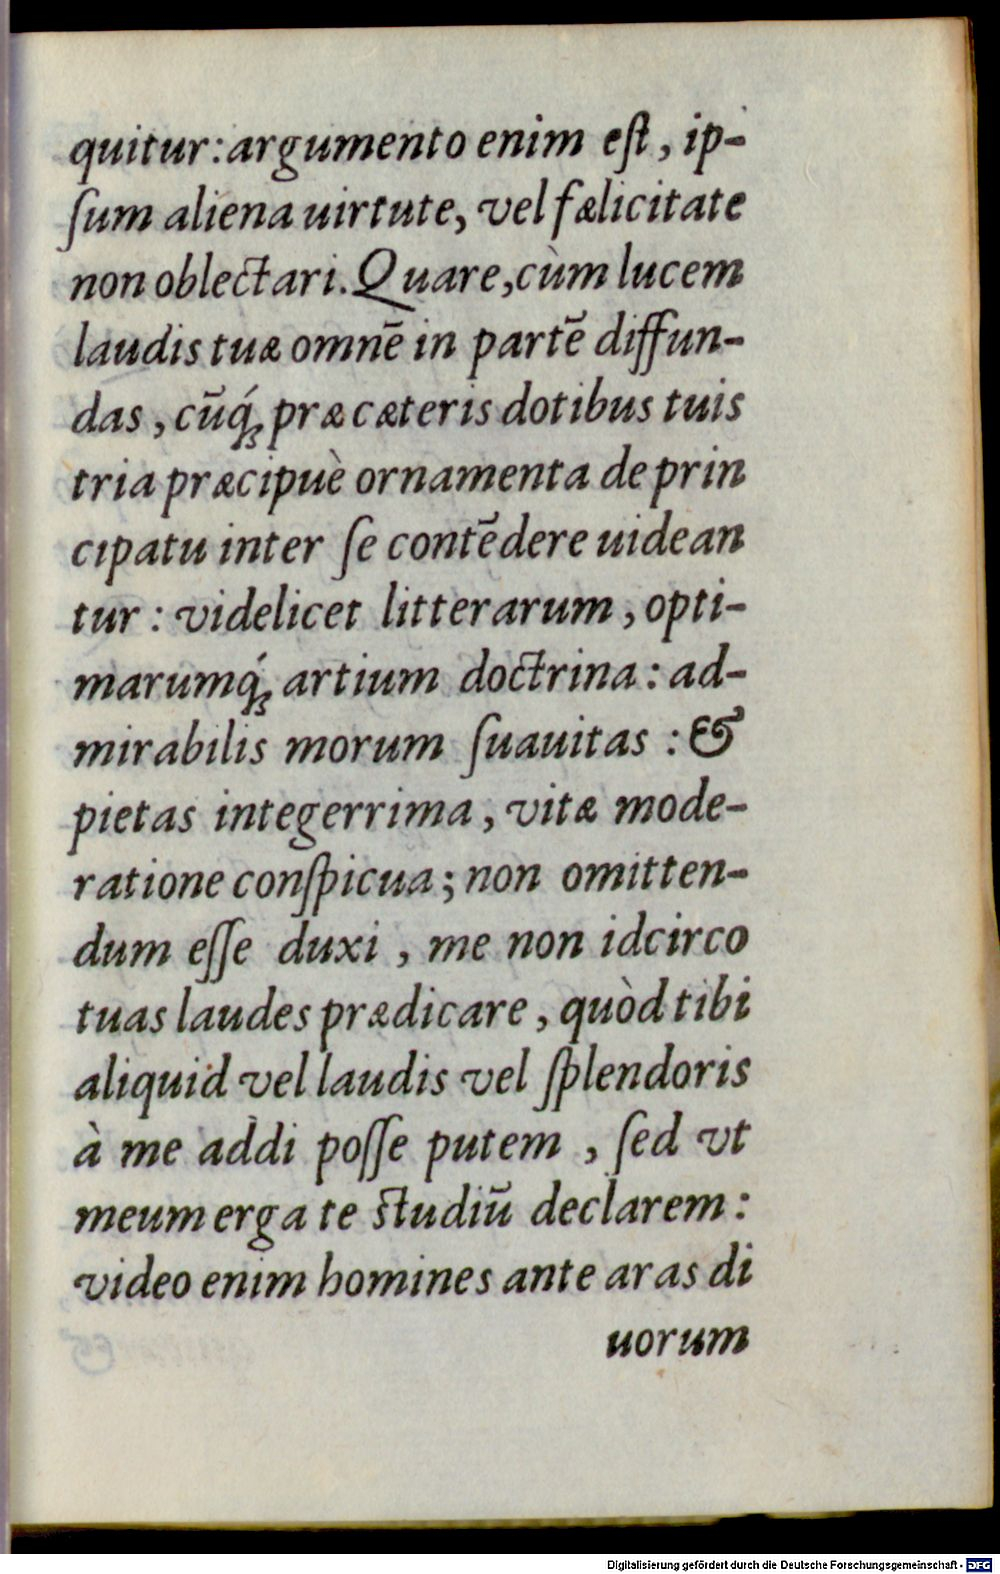 quitur: argumento enim eſt, ip-
ſum aliena uirtute, vel fælicitate
non oblectari. Quare, cùm lucem
laudis tuæ omnē in partē diffun-
das, cūq́; præ cæteris dotibus tuis
tria præcipuè ornamenta de prin
cipatu inter ſe contēdere uidean
tur: videlicet litterarum, opti-
marumq́; artium doctrina: ad-
mirabilis morum ſuauitas: &
pietas integerrima, vitæ mode-
ratione conſpicua; non omitten-
dum eſſe duxi, me non idcirco
tuas laudes prædicare, quòd tibi
aliquid vel laudis vel ſplendoris
à me addi poſſe putem, ſed vt
meum erga te ſtudiū declarem:
video enim homines ante aras di
uorum
Digitalisierung gefördert durch die Deutsche Forschungsgemeinschaft - DFG